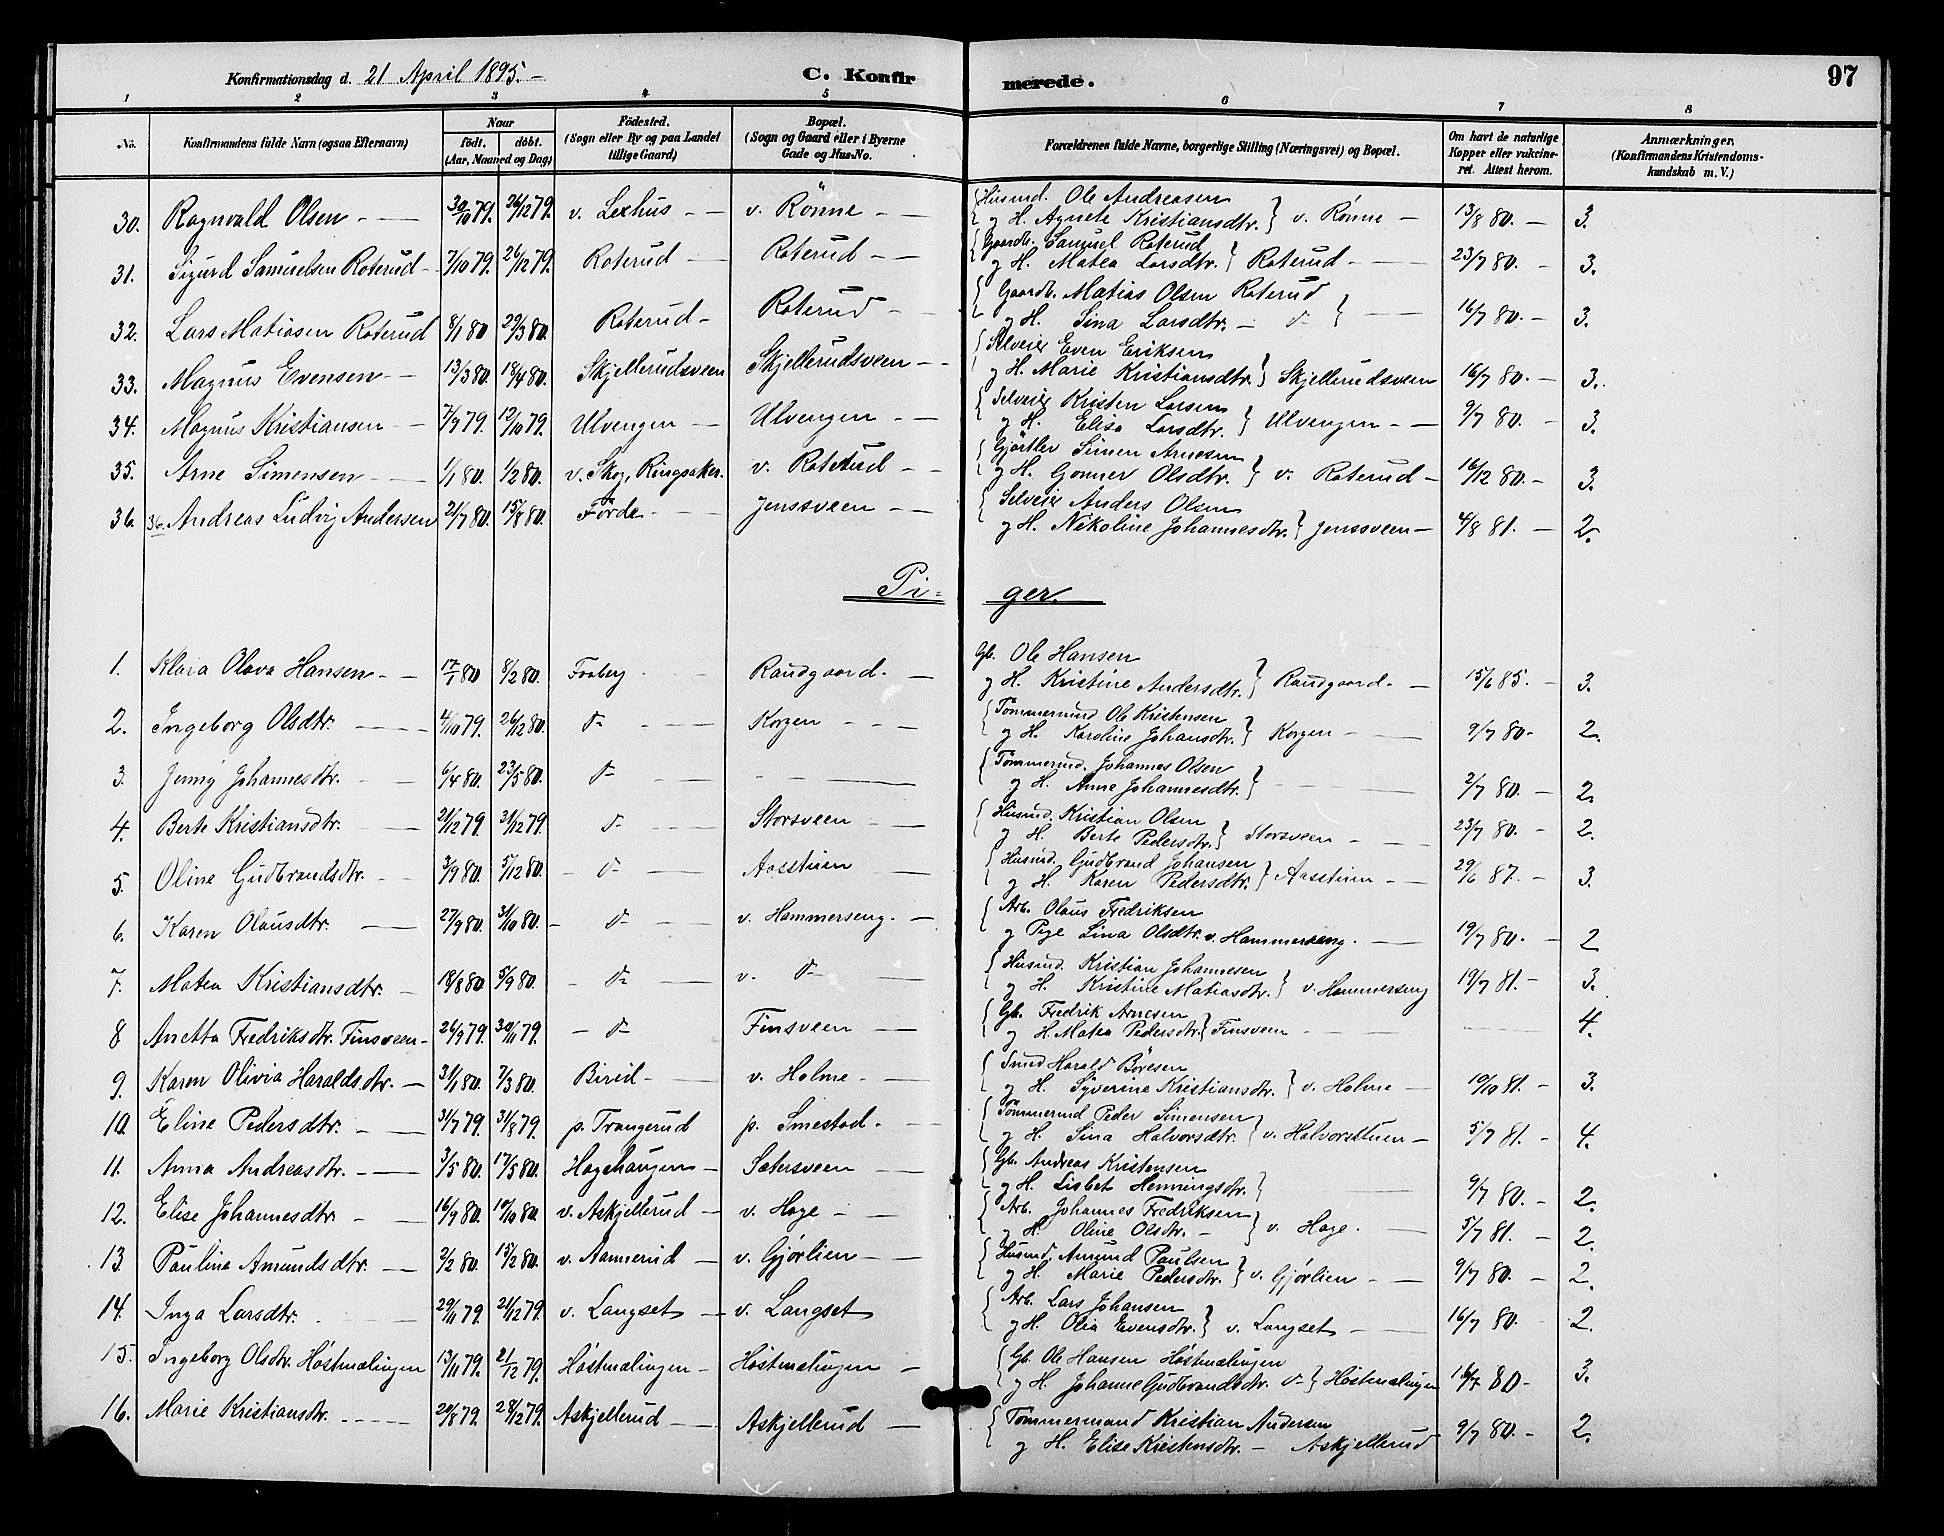 Konfirmationsdag d. 21 April 1895. –
C. Konfirmerede.
97
1 2 3 4 5 6 7 8
No. Konfirmandens fulde Navn (ogsaa Efternavn) Naar födt. döbt. (Aar, Maaned og Dag) Födested. (Sogn eller By og paa Landet tillige Gaard) Bopæl. (Sogn og Gaard eller i Byerne Gade og Hus-No. Forældrenes fulde Navne, borgerlige Stilling (Næringsvei) og Bopæl. Om havt de naturlige Kopper eller vakcineret. Attest herom. Anmærkninger. (Konfirmandens Kristendomskundskab m. V.)
30. Ragnvald Olsen 30/10 79. 26/12 79. v. Lexhus v. Rönne Husmd. Ole Andreasen
g H. Agnete Kristiansdtr. } v. Rönne 13/8 80. 3.
31. Sigurd Samuelsen Roterud 7/10 79. 26/12 79. Roterud Roterud Gaardb. Samuel Roterud
g H. Matea Larsdtr. } Roterud 23/7 80. 3.
32. Lars Matiasen Roterud 8/1 80 29/3 80. Roterud Roterud Gaardb. Matias Olsen Roterud
g H. Sina Larsdtr. 16/7 80. 3.
33. Magnus Evensen 13/3 80. 18/4 80. Skjellerudsveen Skjellerudsveen Selveier Even Eriksen
g H. Marie Kristiansdtr. } Skjellerudsveen 16/7 80. 3.
34. Magnus Kristiansen 7/9 79. 12/10 79. Ulvengen Ulvengen Selveier Kristen Larsen
g H. Elisa Larsdtr. } Ulvengen 9/7 80. 3.
35. Arne Simensen 1/1 80. 1/2 80. v. Skog, Ringsaker. v. Roterud Gjörtler Simen Arnesen
g H. Gonner Olsdtr. } v. Roterud 16/12 80. 3.
36. 36. Andreas Ludvig Andersen 21/7 80. 15/8 80. Förde Jenssveen Selveier Anders Olsen
g H. Nikoline Johannesdtr. } Jenssveen 4/8 81. 2.
Pi- ger.
1. Klara Olava Hansen 17/1 80 8/2 80. Faaberg Raudgaard. Gb. Ole Hansen
g H. Kristine Andersdtr. } Raudgaard. 15/6 85. 3.
2. Ingeborg Olsdtr. 4/10 79. 26/12 80. Korgen Tömmermd Ole Kristensen
g H. Karoline Johansdtr. } Korgen 9/7 80 2.
3. Jenny Johannesdtr. 6/4 80. 23/5 80. Tömmermd. Johannes Olsen
g H. Anne Johannesdtr. } 2/7 80. 2.
4. Berte Kristiansdtr. 21/12 79. 31/12 79. Storsveen Husmd. Kristian Olsen
g H. Berte Pedersdtr. } Storsveen 23/7 80. 2.
5. Oline Gudbrandsdtr. 3/9 80. 5/12 80. Aasstuen Husmd. Gudbrand Johansen
g H. Karen Pedersdtr. } Aasstuen 29/6 87. 3.
6. Karen Olausdtr. 27/9 80. 31/10 80. v. Hammerseng. Arb. Olaus Fredriksen
g Pige Lina Olsdtr. v. Hammerseng. 19/7 80. 2
7. Matea Kristiansdtr. 18/8 80 5/9 80. v. Husmd. Kristian Johannesen
g H. Kristine Matiasdtr. } v. Hammerseng 19/7 81. 3.
8 Anetta Fredriksdtr. Finsveen 26/9 79. 30/11 79. Finsveen Gb. Fredrik Arnesen
g H. Matea Pedersdtr. } Finsveen 4.
9. Karen Olivia Haraldsdtr. 31/1 80. 7/3 80. Birid v. Holme Smed Harald Böresen
g H. Syverine Kristiansdtr. } v. Holme 10/10 81. 3.
10. Eline Pedersdtr. 31/7 79. 31/8 79. p. Trangerud p. Smestad. Tömmermd Peder Simensen
g H. Sina Halvorsdtr. } v. Halvorstuen 5/7 81. 4.
11. Anna Andreasdtr. 3/5 80. 17/5 80. Hagehaugen Satersveen Gb. Andreas Kristensen
g H. Lisbet Henningsdtr. } 9/7 80. 2.
12. Elise Johannesdtr. 16/9 80. 10/10 80. v. Askjellerud v. Hage Arb. Johannes Fredriksen
g H. Oline Olsdtr. } v. Hage. 5/7 81. 2.
13. Pauline Amundsdtr. 2/2 80. 15/2 80. v. Aannerud v. Gjörlien Husmd. Amund Paulsen
g H. Marie Pedersdtr. } v. Gjörlien 9/7 80. 2.
14. Inga Larsdtr. 29/11 79. 21/12 79. v. Langset v. Langset Arb. Lars Johansen
g H. Olia Evensdtr. } v. Langset 16/7 80. 2.
15. Ingeborg Olsdtr. Höstmælingen 13/11 79. 21/12 79. Höstmælingen Höstmælingen Gb. Ole Hansen Höstmælingen
g H. Johanne Gudbrandsdtr. } Höstmælingen 16/7 80. 3.
16. Marie Kristiansdtr. 20/8 79. 28/12 79. Askjellerud Askjellerud Tömmermand Kristian Andersen
g H. Elise Kristensdtr. Askjellerud 9/7 80. 2.